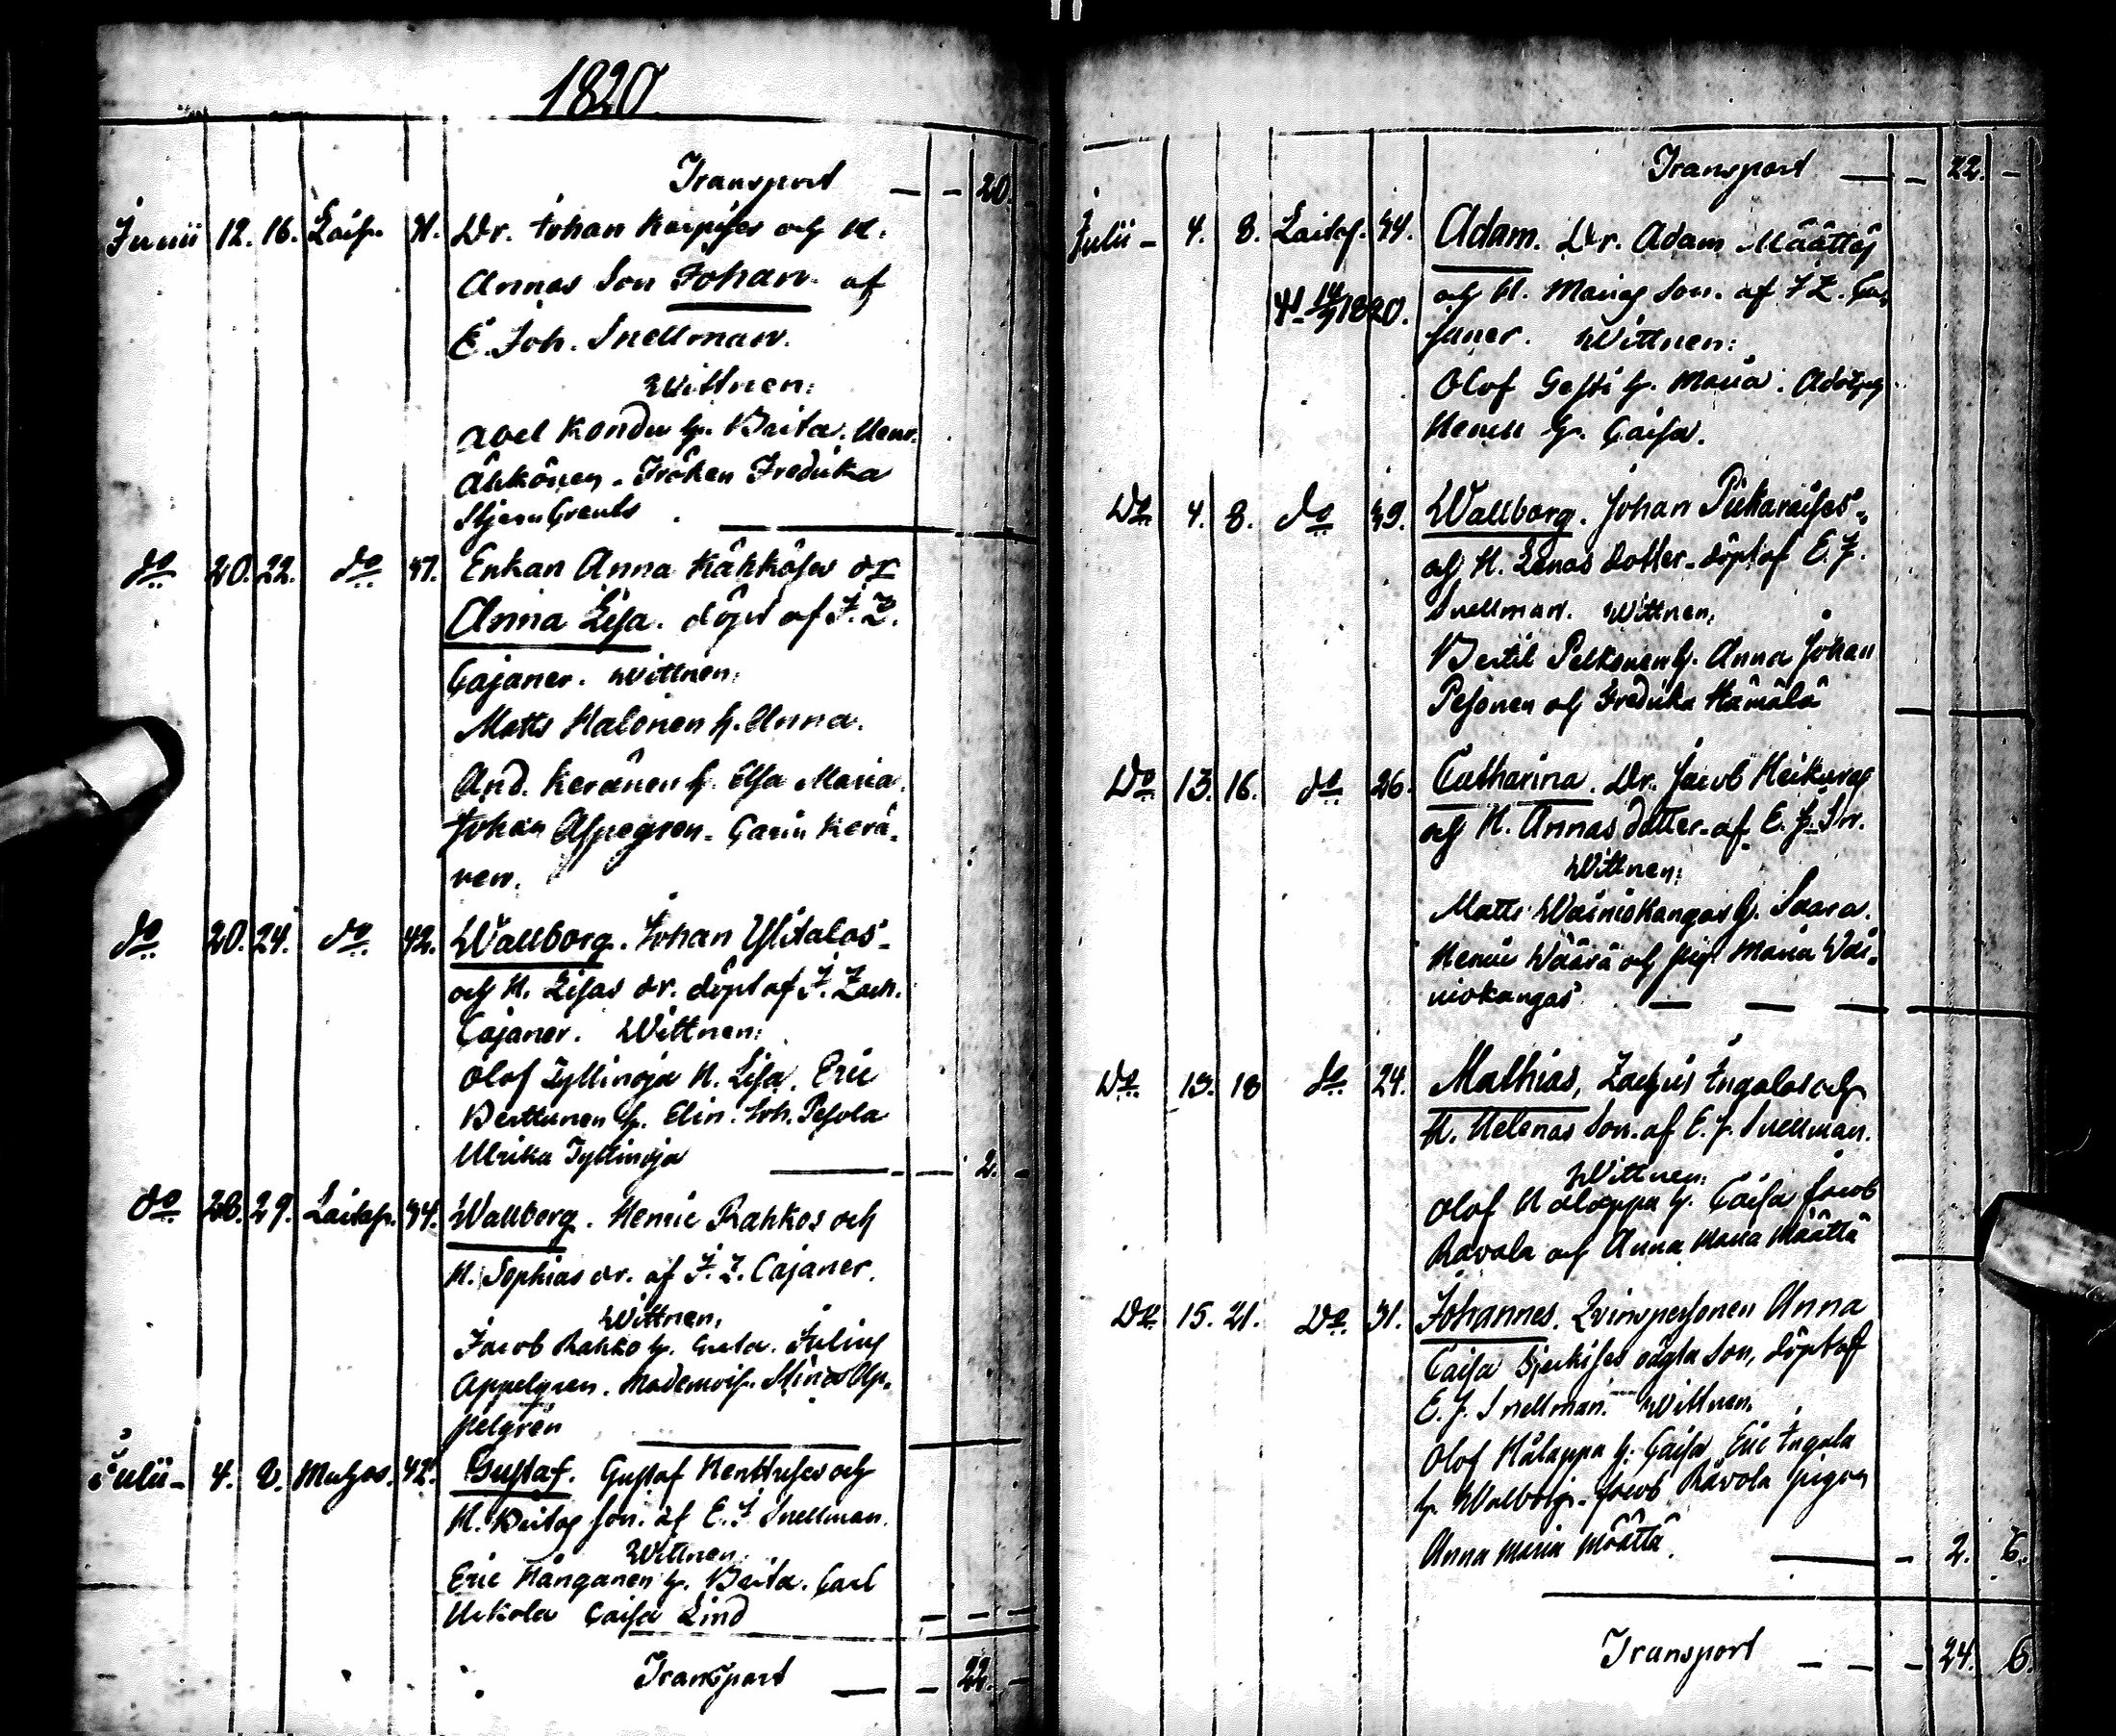 1820
Transport — — 20.
Junii 12. 16. 41. Dr. Johan och H.
Annas Son Johan af
E. Joh. Snellman.
Wittnen:
Abel Kondu h. Brita. Henr.
Ähkönen. Fröken Fredrika
do 20. 22. do 47. Enkan Anna Kähkösес dr
Anna Lisa. döpt af J. Z.
Cajaner. Wittnen:
Matts Halonen h. Anna.
And. Keränen h. Elsa Maria.
Johan Aspegren. Carin Kerä-
nen.
do 20. 24. do 42. Wallborg. Johan Ylitalos
och H. Lisas dr. döpt af J. Zach.
Cajaner. Wittnen:
Olof Tyllinoja H. Lisa. Eric
Berttunen h. Elin. Joh. Pesola
Ulrika Tyllinoja — 2. -
do 29. 34. Wallborg. Henric Rahkos och
H. Sophias dr. af J. Z. Cajaner.
Wittnen,
Jacob Rahko h. Greta. Julius
Appelgren. Mademois. Stina Ap-
pelgren
Julii - 4. 42. Gustaf. Gustaf och
H. Britas son. af E. J. Snellman.
Wittnen
Eric Hånganen h. Brita. Carl
Caisa Lind
Transport — — 22. -
Transport — — 22. -
Julii - 4. 8. 34. Adam. Dr. Adam Määttäs
och H. Marias Son. af J Z. Ca-
janer. Wittnen:
Olof h. Maria.
h. Caisa.
Do 4. 8. do 39. Wallborg. Johan
och H. Lenas dotter. döpt af E. J.
Snellman. Wittnen,
Bertil Pelkonen h. Anna Johan
Pesonen och Fredrika Hämälä
Do 13. 16. do 26. Catharina. Dr. Jacob
och H. Annas dotter. af E. J. Sn.
Wittnen:
Matts Wäiniökangas h. Saara.
Henric Wäärä och pig. Maria Wäi-
niökangas — — —
Do 13. 18 do 24. Mathias, Ingalas och
H. Helenas Son. af E. J. Snellman.
Wittnen:
Olof h. Caisa Jacob
Ravola och Anna Maria Määttä
Do 15. 21. Do 31. Johannes. Qvinspersonen Anna
Caisa oägta Son, döpt af
E. J. Snellman. Wittnen.
Olof h. Caisa Eric Ingala
h. Walborg. Jacob Ravola pigan
Anna Maria Määttä. — - 2. 6.
Transport — — - 24. 6.